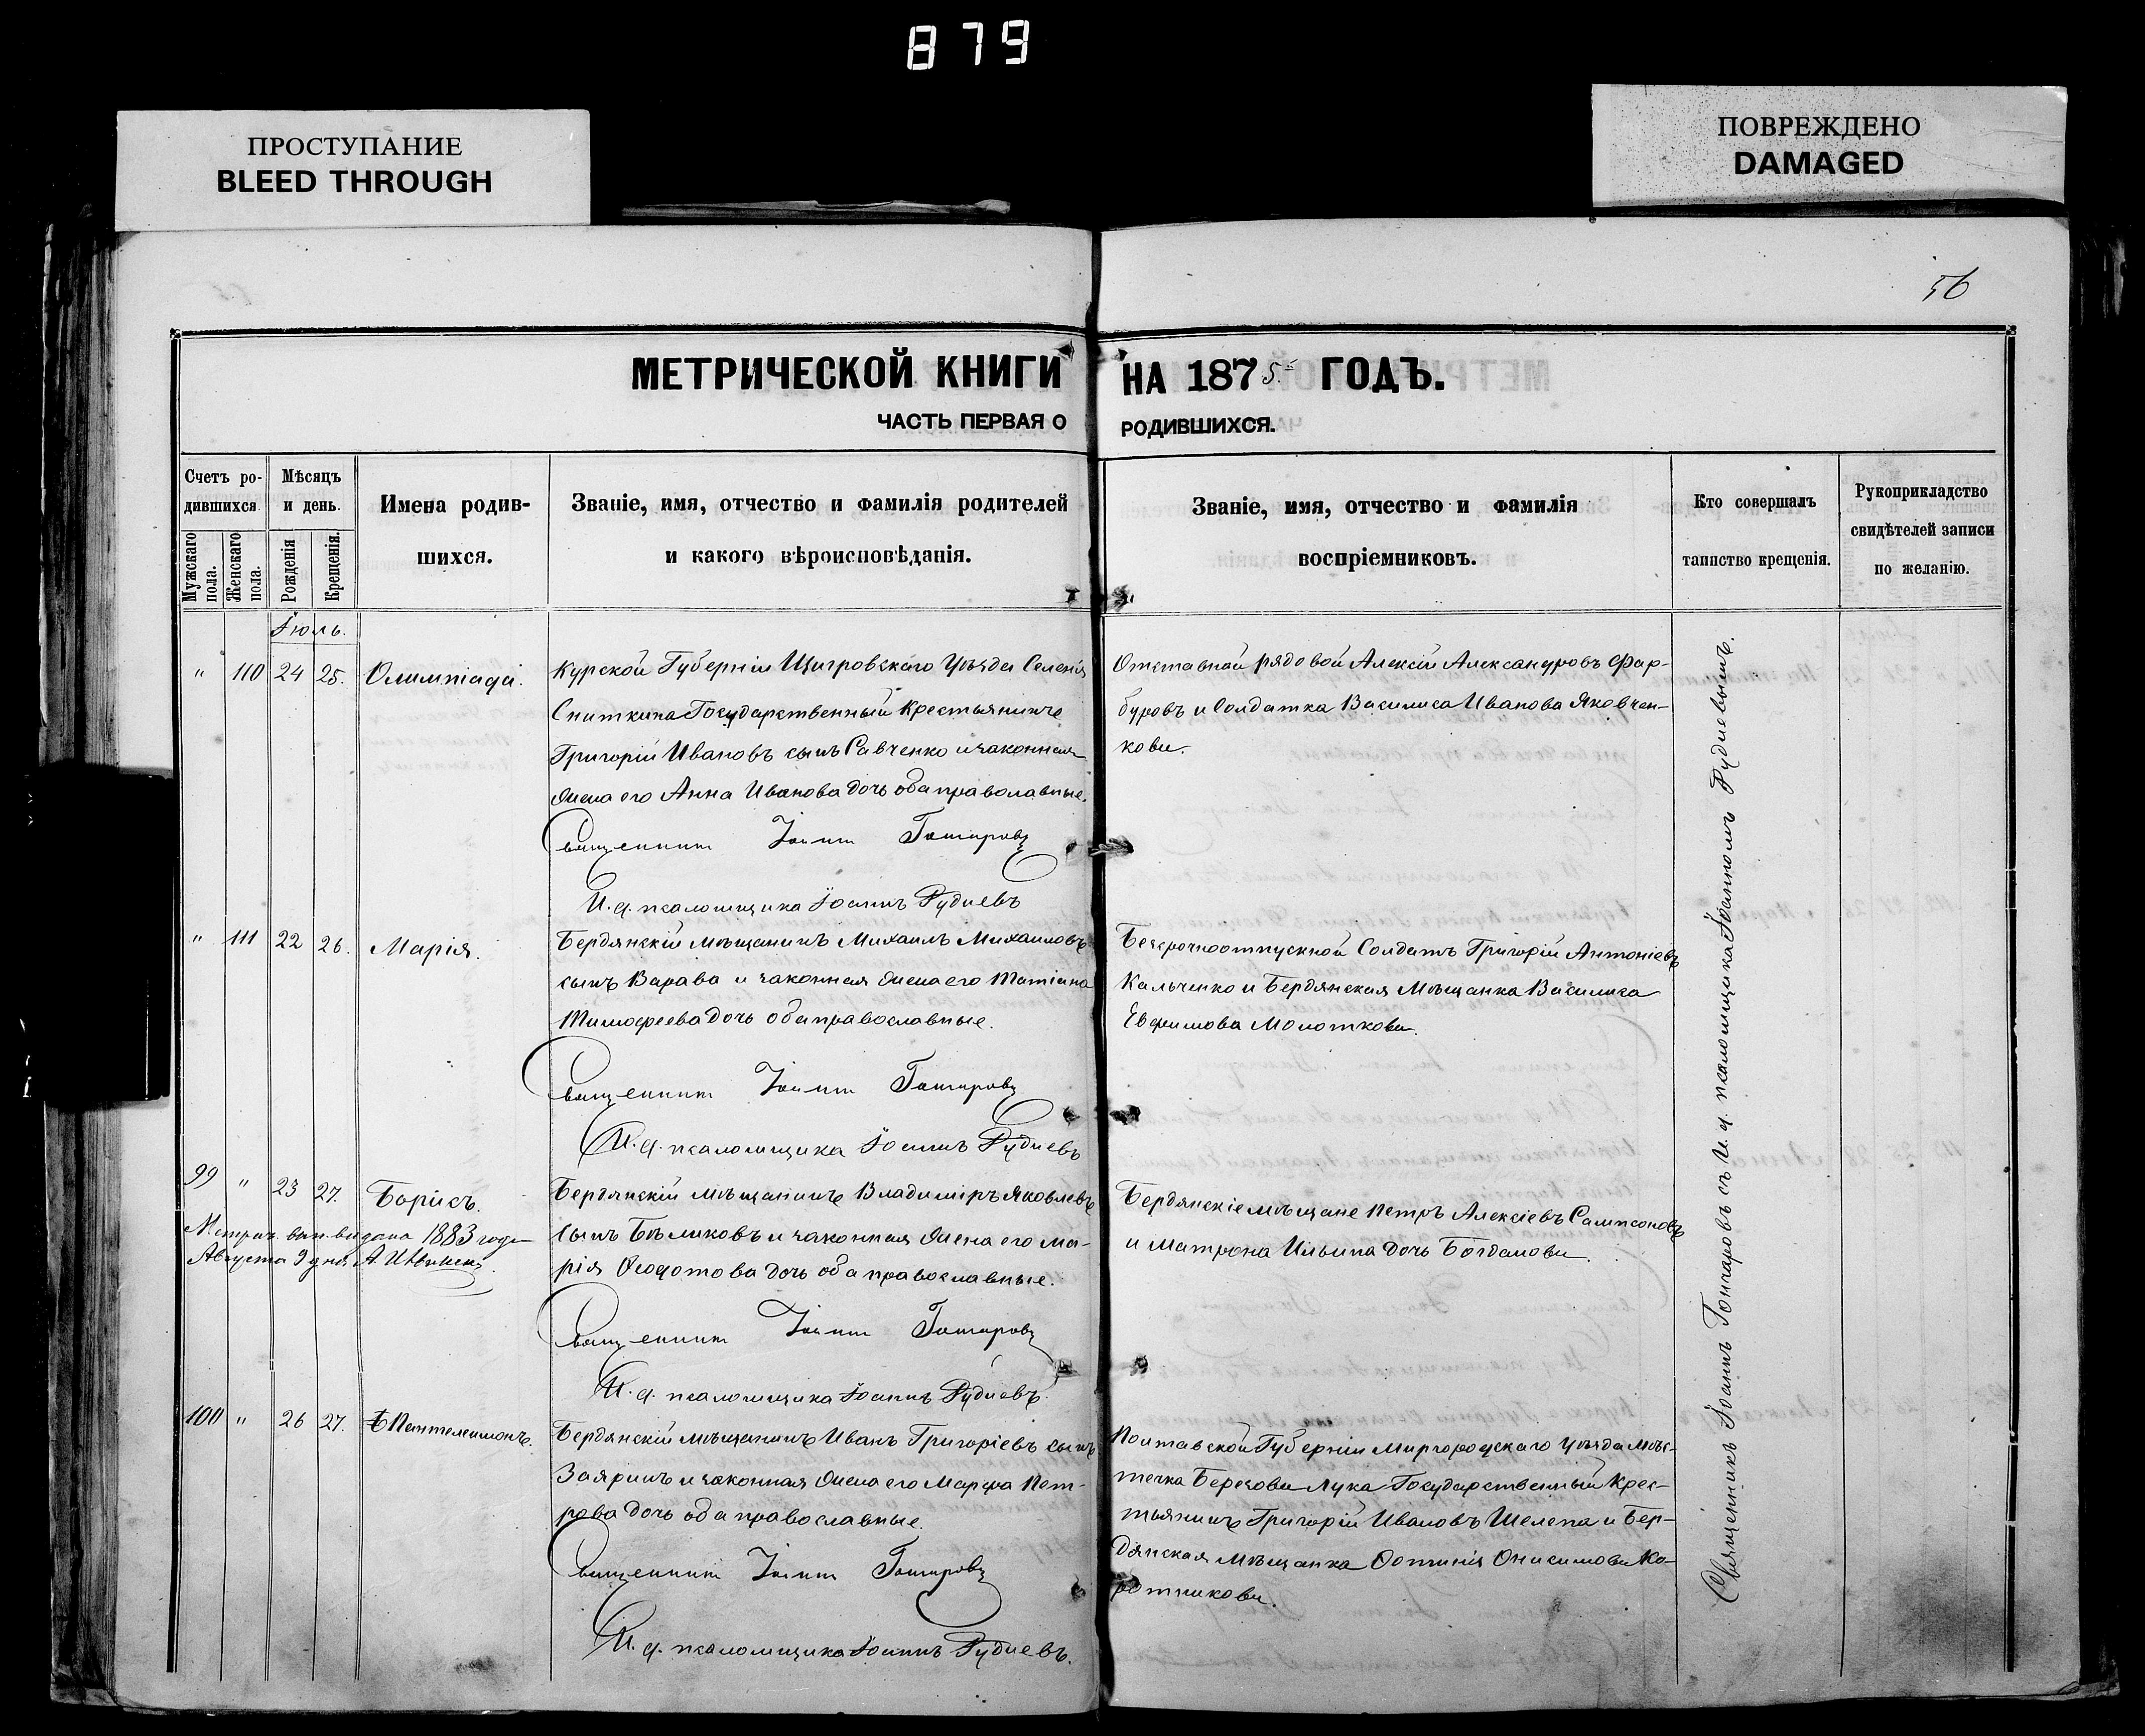 879
ПРОСТУПАНИЕ
BLEED THROUGH
ПОВРЕЖДЕНО
DAMAGED
56
МЕТРИЧЕСКОЙ КНИГИ НА 1875 ГОДЪ.
ЧАСТЬ ПЕРВАЯ О РОДИВШИХСЯ.
Счетъ ро-
дившихся
Мужскаго пола.
Женскаго пола.
Мѣсяцъ
и день.
Рожденія
Крещенія.
Имена родив-
шихся.
Званіе, имя, отчество и фамилія родителей
и какого вѣроисповѣданія.
Званіе, имя, отчество и фамилія
воспріемниковъ.
Кто совершалъ
таинство крещенія.
Рукоприкладство
свидѣтелей записи
по желанію.
Іюль.
" 110 24 25. Олимпіада.
Курской Губерніи Щигровскаго Уѣзда Селенія
Сниткина Государственный Крестьянинъ
Григорій Ивановъ сынъ Савченко и законная
жена его Анна Иванова дочь оба православные.
Священникъ Іоаннъ Гончаровъ
И. д. псаломщика Іоаннъ Рудневъ
Отставной рядовой Алексій Александровъ Фар-
буровъ и Солдатка Василиса Иванова Яковчен-
кова.
" 111 22 26. Марія.
Бердянскій мѣщанинъ Михаилъ Михаиловъ
сынъ Варава и законная жена его Татіана
Тимофеева дочь оба православные.
Священникъ Іоаннъ Гончаровъ
И. д. псаломщика Іоаннъ Рудневъ
Безсрочноотпускной Солдатъ Григорій Антоніевъ
Кальченко и Бердянская Мѣщанка Василиса
Евфимова Молоткова.
99 " 23 27. Борисъ.
Метрич. вып. выдана 1883 года
Августа 9 дня
Бердянскій мѣщанинъ Владиміръ Яковлевъ
сынъ Бѣликовъ и законная жена его Ма-
рія Ѳедотова дочь оба православные.
Священникъ Іоаннъ Гончаровъ
И. д. псаломщика Іоаннъ Рудневъ.
Бердянскіе мѣщане Петръ Алексіевъ Сампсоновъ
и Матрона Ильина дочь Богданова.
100 " 26 27. Пантелеимонъ.
Бердянскій мѣщанинъ Иванъ Григоріевъ сынъ
Заяринъ и законная жена его Марфа Пет-
рова дочь оба православные.
Священникъ Іоаннъ Гончаровъ
И. д. псаломщика Іоаннъ Рудневъ.
Полтавской Губерніи Миргородскаго уѣзда мѣс-
течка Березова Лука Государственный Крес-
тьянинъ Григорій Ивановъ Шелепа и Бер-
дянская мѣщанка Фотинія Онисимова Ко-
ротникова.
Священникъ Іоаннъ Гончаровъ съ И. д. псаломщика Іоанномъ Рудневымъ.